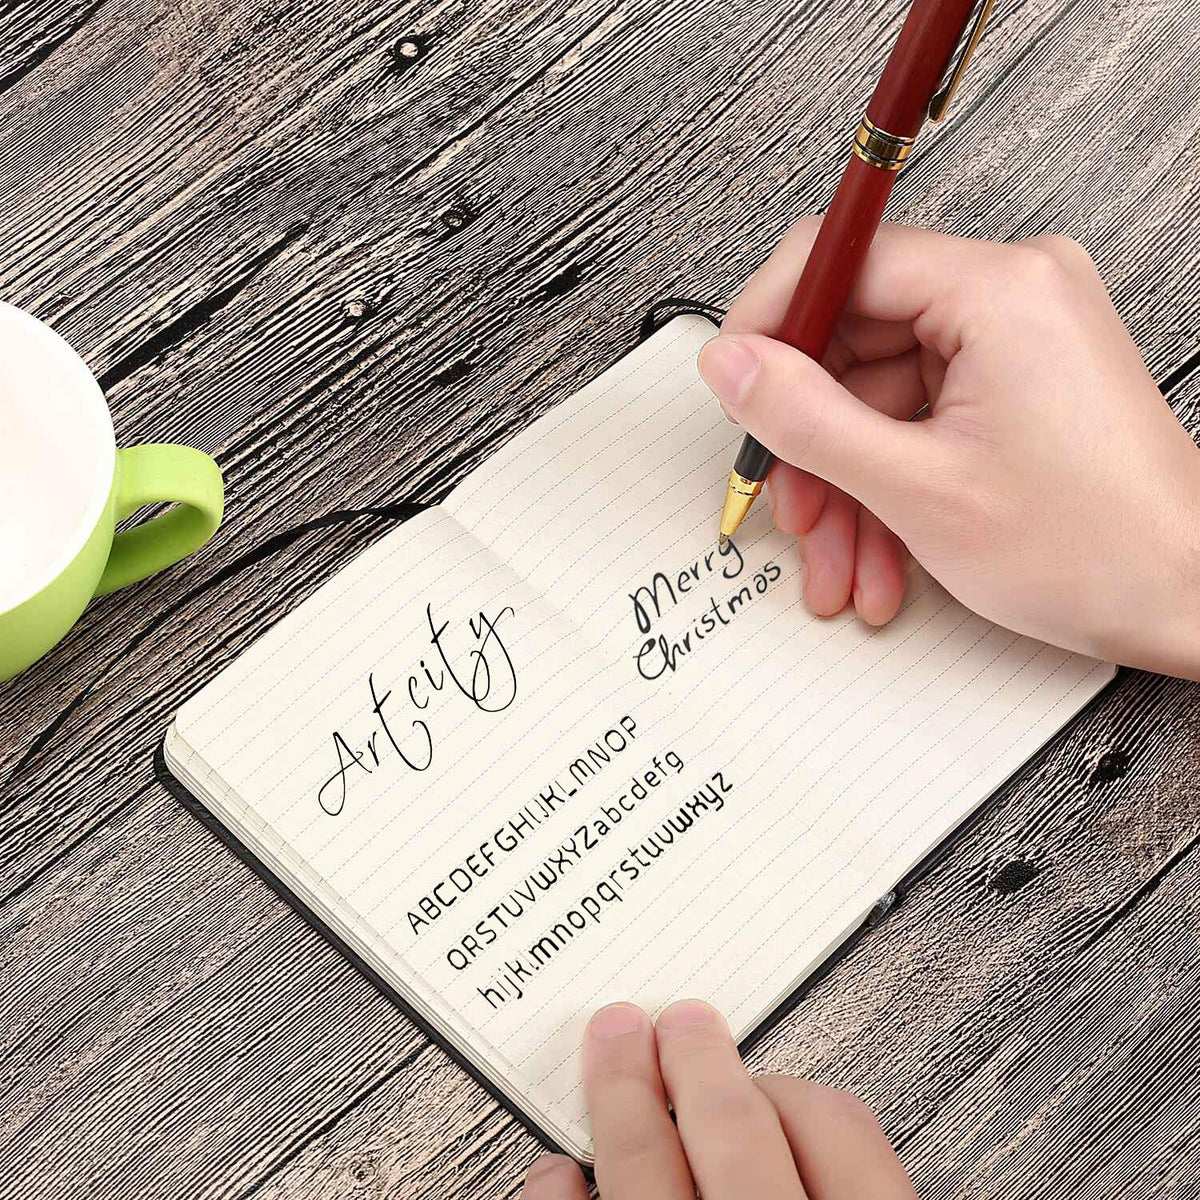 Artcity
Merry
Christmas
ABCDEFGHIJKLMNOP
QRSTUVWXYZabcdefg
hijklmnopqrstuvwxyz